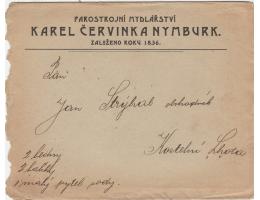 PAROSTROJNÍ MYDLÁŘSTVÍ
KAREL ČERVINKA NYMBURK.
ZALOŽENO ROKU 1836.
Pan
Jan Strýhal obchodník
Kostelní Lhota
2 bedny
2 balíky
1 malý pytel sody.